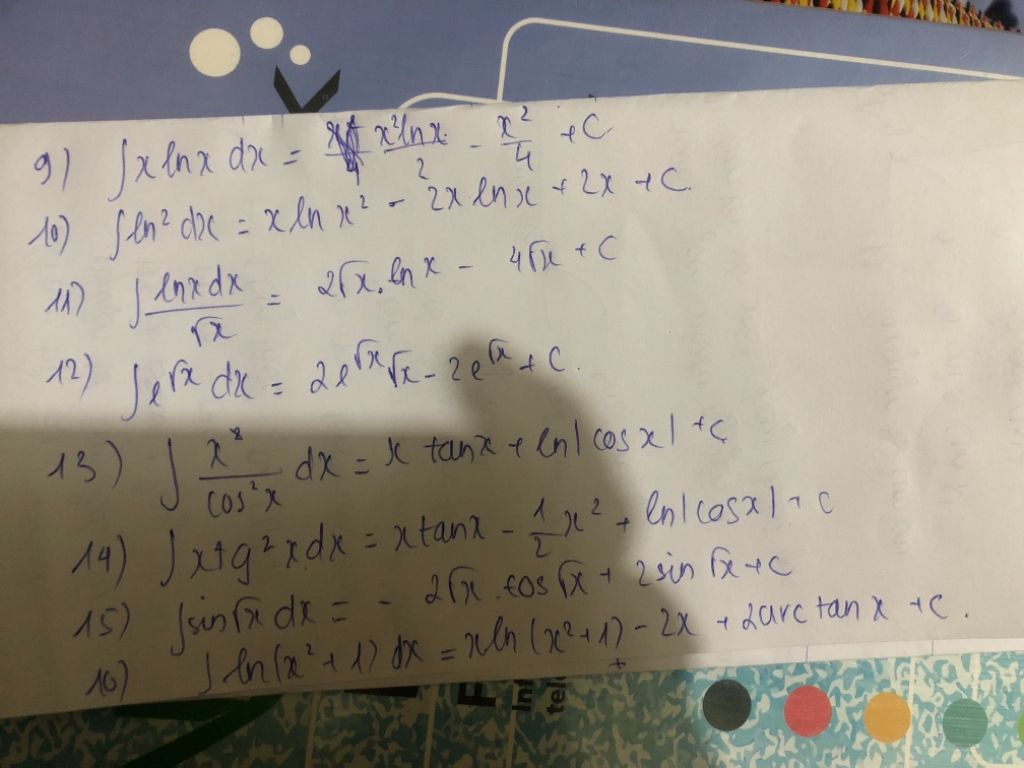 9) ∫x lnx dx = x²lnx/2 - x²/4 + C
10) ∫ln² dx = x ln x² - 2x lnx + 2x + C.
11) ∫ lnx dx/√x = 2√x . ln x - 4√x + C
12) ∫e^√x dx = 2e^√x √x - 2e^√x + C.
13) ∫ x/cos²x dx = x tanx + ln|cosx| + C
14) ∫x tg²x dx = x tanx - 1/2 x² + ln|cosx| + C
15) ∫sin√x dx = - 2√x . cos√x + 2sin √x + C
16) ∫ ln(x²+1) dx = xln(x²+1) - 2x + 2arctanx + C.